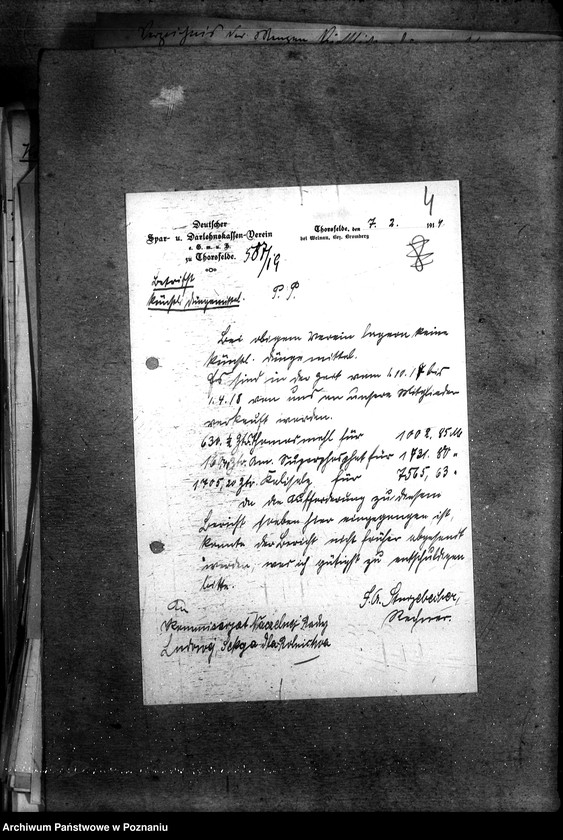 Verzeichnis der
4
Deutscher
Spar- u. Darlehnskassen-Verein
e. G. m. u. H.
zu Thorsfelde.
587/19
Thorsfelde, den 7. 2. 191
bei Weinau, Bez. Bromberg
Betrifft
künstl. Düngemittel.
P. P.
Bei obigem Verein lagern keine
künstl. Düngemittel.
Es sind in der Zeit vom 1.10.17 bis
1.4.18 von uns an unsere Mitglieder
verkauft worden.
630. Thomasmehl für 1002,85 M
Am. Superphosphat für 1721.80 "
1705,20 Ztr. Kalisalz für 7565,63 "
Da die Aufforderung zu diesem
Bericht soeben hier eingegangen ist,
konnte der Bericht nicht früher abgesandt
werden, was ich gütigst zu entschuldigen
bitte.
Rechner.
An
Kommissariat Naczelnej Rady
Ludowej, dla Rolnictwa
Archiwum Państwowe w Poznaniu